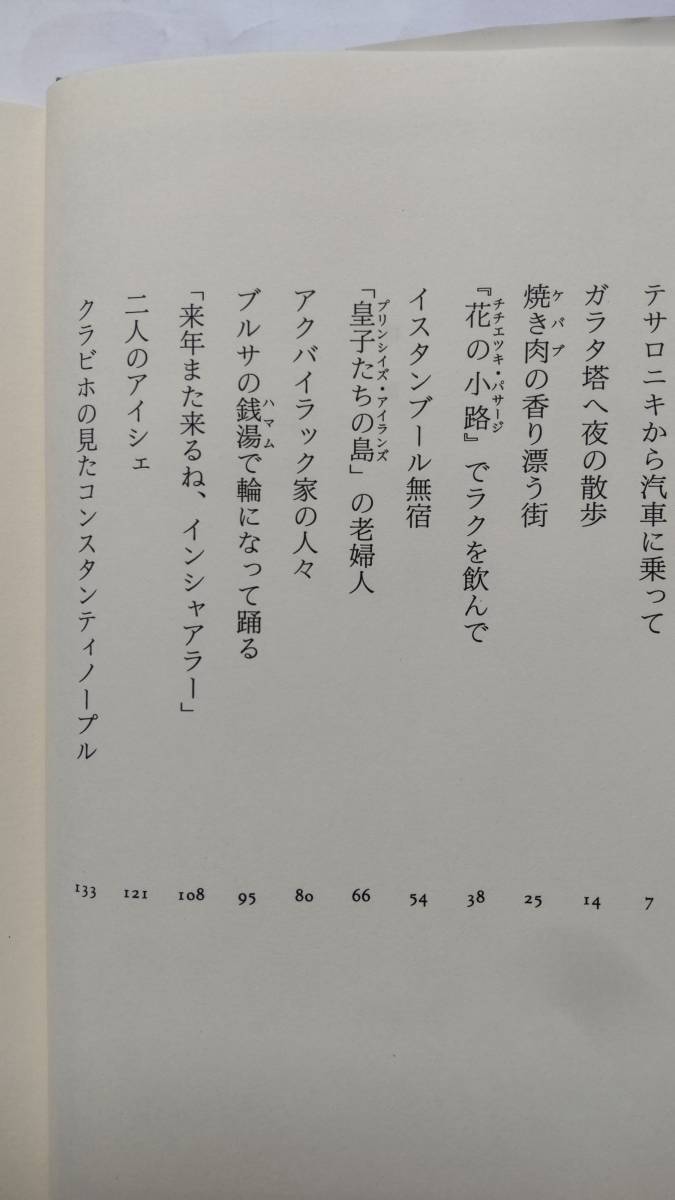 テサロニキから汽車に乗って 7
ガラタ塔へ夜の散歩 14
焼き肉の香り漂う街 25
ケバブ
『花の小路』でラクを飲んで 38
チチエツキ・パサージ
イスタンブール無宿 54
「皇子たちの島」の老婦人 66
プリンシイズ・アイランズ
アクバイラック家の人々 80
ブルサの銭湯で輪になって踊る 95
ハマム
「来年また来るね、インシャアラー」 108
二人のアイシェ 121
クラビホの見たコンスタンティノープル 133